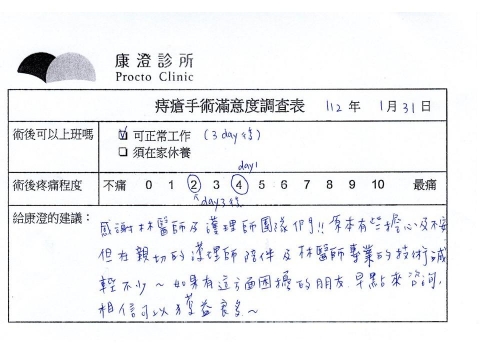 康澄診所
Procto Clinic
痔瘡手術滿意度調查表 112 年 1 月 31 日
術後可以上班嗎 ☑ 可正常工作 (3 day後)
☐ 須在家休養
day1
術後疼痛程度 不痛 0 1 2 3 4 5 6 7 8 9 10 最痛
day3後
給康澄的建議:
感謝林醫師及護理師團隊們!! 原本有些擔心及不安
但在親切的護理師陪伴及林醫師專業的技術減
輕不少~ 如果有這方面困擾的朋友早點來咨詢,
相信可以獲益良多~